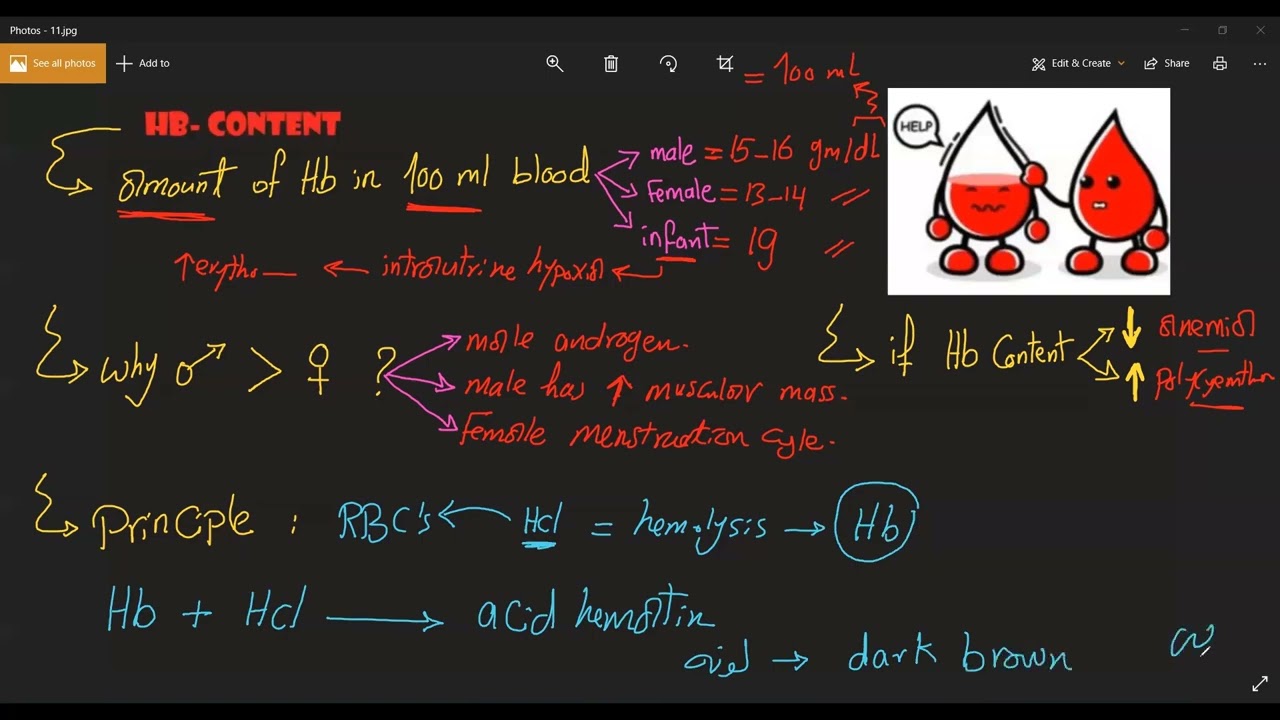 Photos - 11.jpg
See all photos
Add to
Edit & Create
Share
= 100 mL
HB- CONTENT
amount of Hb in 100 ml blood
male = 15-16 gm/dL
Female = 13-14 //
infant = 19 //
HELP
↑erythro ← introutrine hypoxia ←
Why ♂ > ♀ ?
male androgen.
male has ↑ muscular mass.
Female menstruation cyle.
if Hb Content
↓ anemia
↑
Principle : RBC's ← Hcl = hemolysis → Hb
Hb + Hcl → acid hematin
→ dark brown